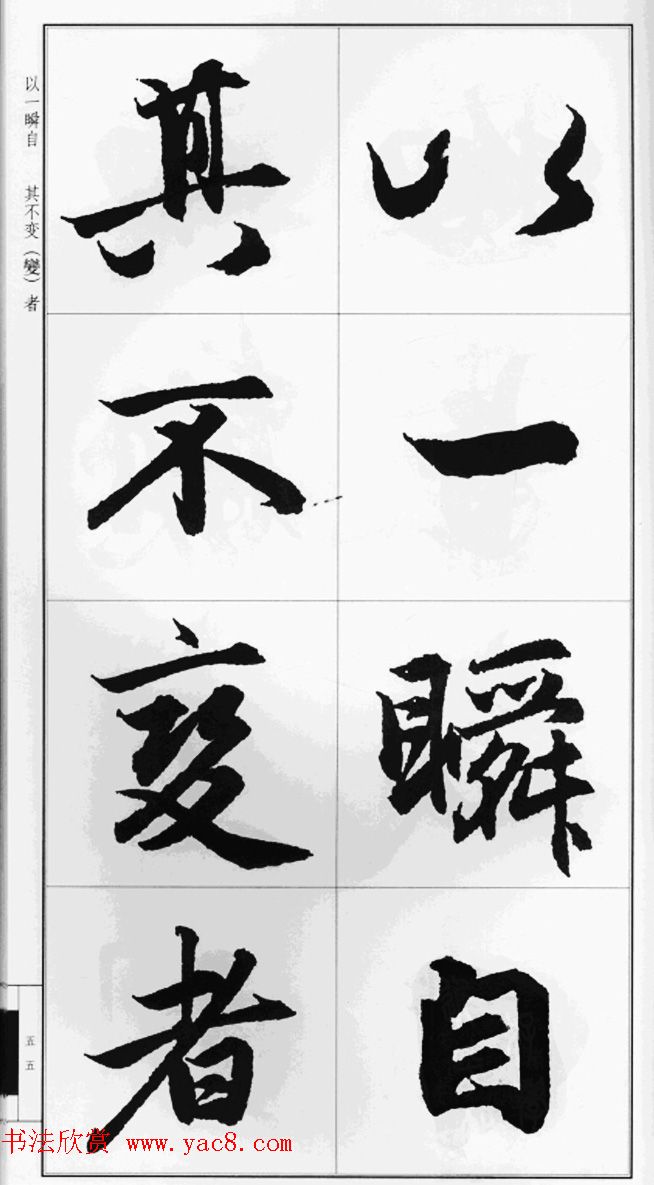 以一瞬自
其不变者
以一瞬自 其不变（變）者
五五
书法欣赏 www.yac8.com